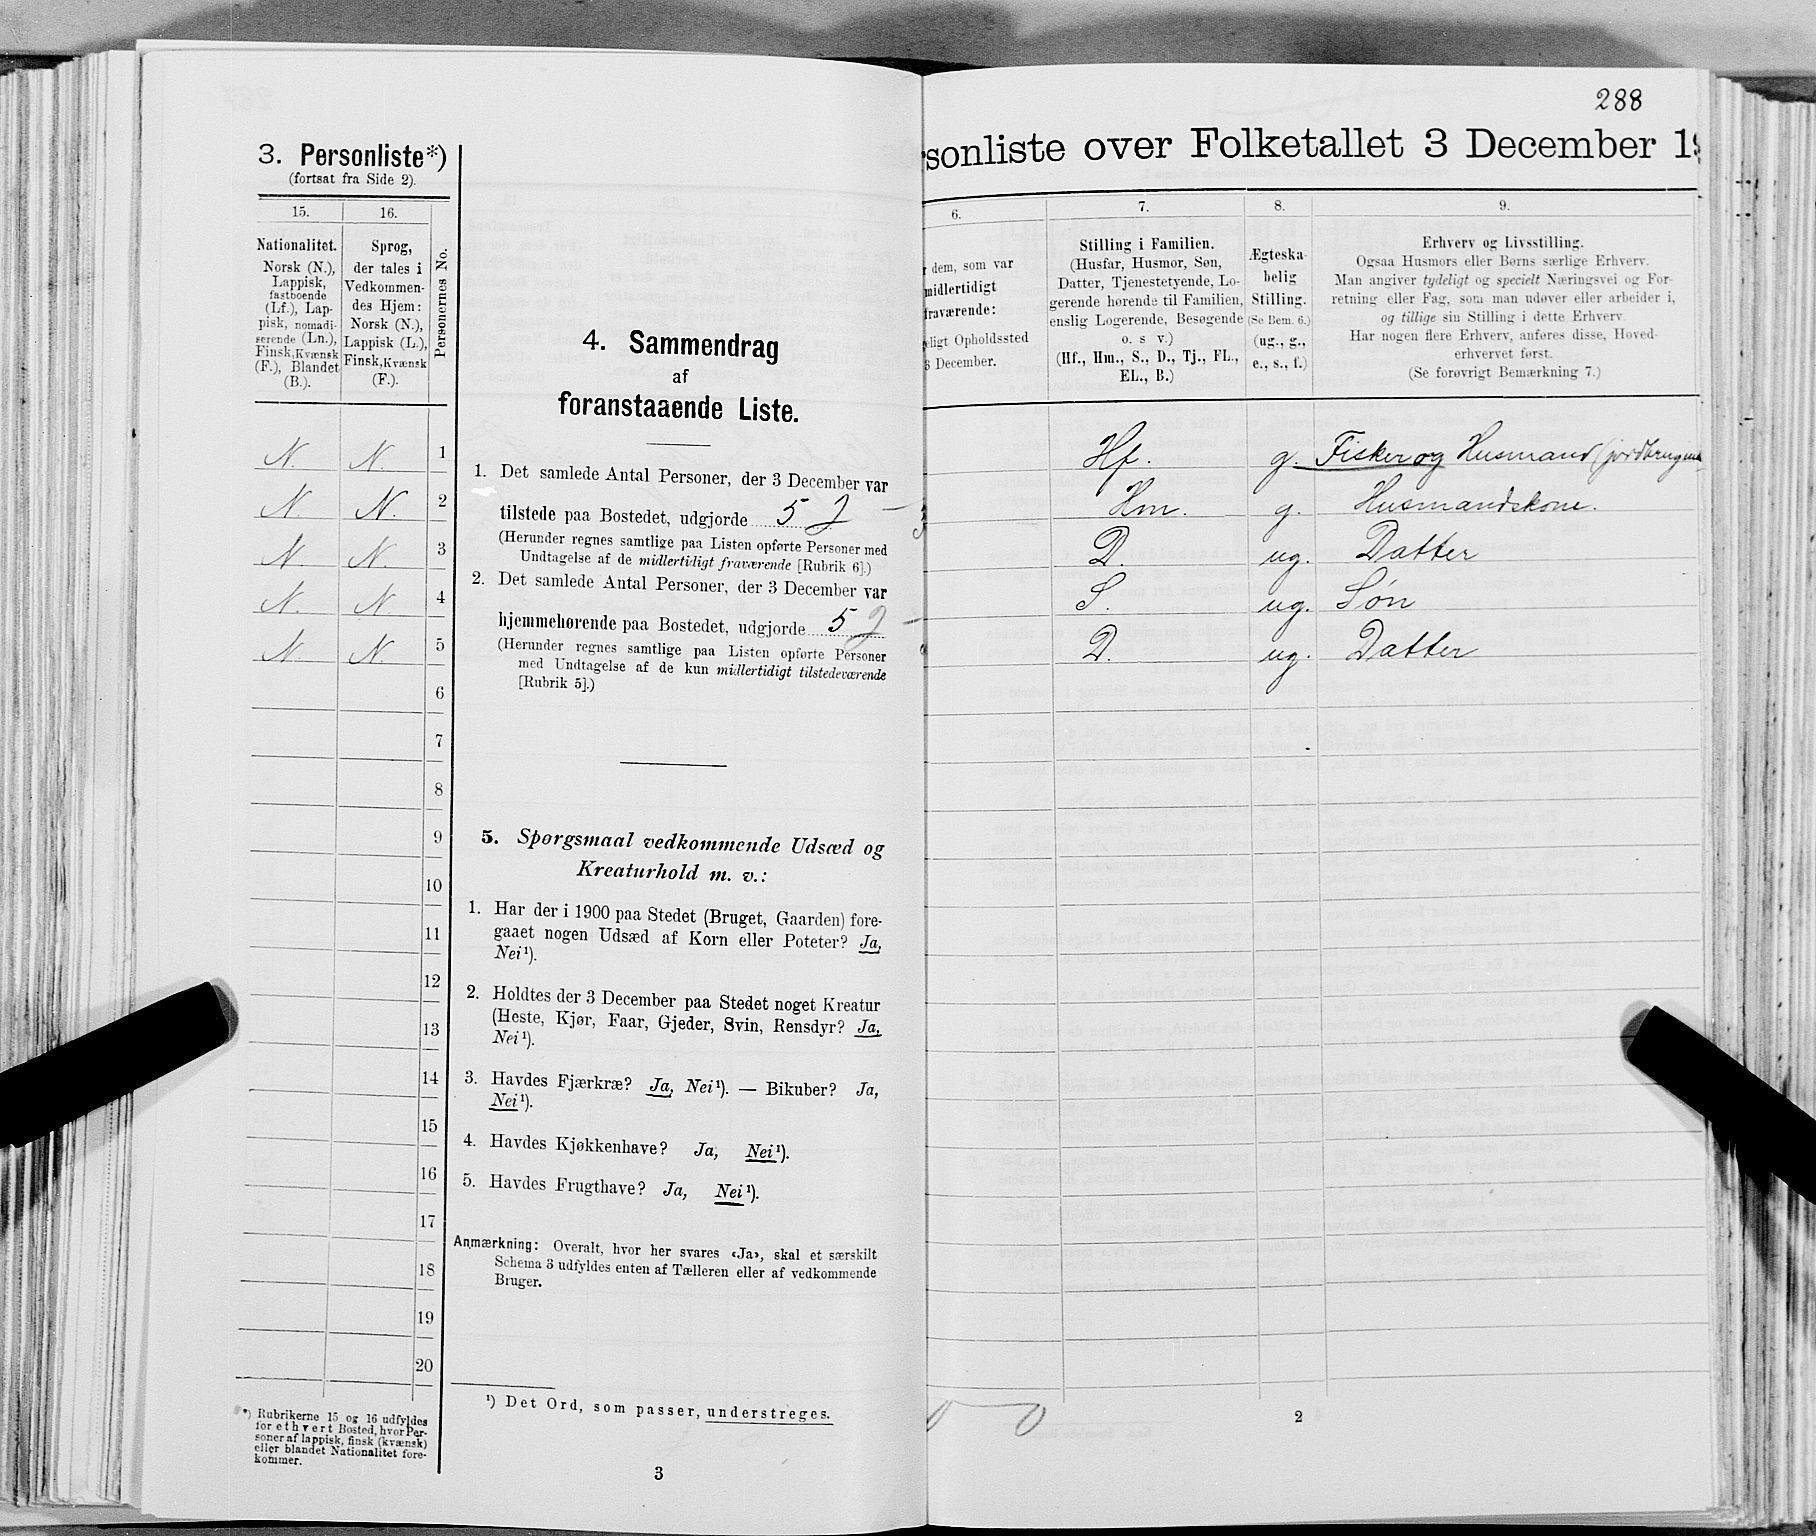 3. Personliste*)
(fortsat fra Side 2).
15.
16.
Personernes No.
Nationalitet.
Norsk (N.),
Lappisk,
fastboende
(Lf.), Lap-
pisk, nomadi-
serende (Ln.),
Finsk, Kvænsk
(F.), Blandet
(B.).
Sprog,
der tales i
Vedkommen-
des Hjem:
Norsk (N.),
Lappisk (L.),
Finsk, Kvænsk
(F.).
N. N. 1
N N. 2
N. N. 3
N. N 4
N. N. 5
6
7
8
9
10
11
12
13
14
15
16
17
18
19
20
*) Rubrikerne 15 og 16 udfyldes
for ethvert Bosted, hvor Per-
soner af lappisk, finsk (kvænsk)
eller blandet Nationalitet fore-
kommer.
4. Sammendrag
af
foranstaaende Liste.
1. Det samlede Antal Personer, der 3 December var
tilstede paa Bostedet, udgjorde 5
(Herunder regnes samtlige paa Listen opførte Personer med
Undtagelse af de midlertidigt fraværende [Rubrik 6].)
2. Det samlede Antal Personer, der 3 December var
hjemmehørende paa Bostedet, udgjorde 5
(Herunder regnes samtlige paa Listen opførte Personer
med Undtagelse af de kun midlertidigt tilstedeværende
[Rubrik 5].)
5. Spørgsmaal vedkommende Udsæd og
Kreaturhold m. v.:
1. Har der i 1900 paa Stedet (Bruget, Gaarden) fore-
gaaet nogen Udsæd af Korn eller Poteter? Ja,
Nei¹).
2. Holdtes der 3 December paa Stedet noget Kreatur
(Heste, Kjør, Faar, Gjeder, Svin, Rensdyr? Ja,
Nei¹).
3. Havdes Fjærkræ? Ja, Nei¹). — Bikuber? Ja,
Nei¹).
4. Havdes Kjøkkenhave? Ja, Nei¹).
5. Havdes Frugthave? Ja, Nei¹).
Anmærkning: Overalt, hvor her svares «Ja», skal et særskilt
Schema 3 udfyldes enten af Tælleren eller af vedkommende
Bruger.
¹) Det Ord, som passer, understreges.
3
288
sonliste over Folketallet 3 December 19
6.
dem, som var
midlertidigt
fraværende:
eligt Opholdssted
3 December.
7.
Stilling i Familien.
(Husfar, Husmor, Søn,
Datter, Tjenestetyende, Lo-
gerende hørende til Familien,
enslig Logerende, Besøgende
o. s v.)
(Hf., Hm., S., D., Tj., FL.,
EL., B.)
8.
Ægteska-
belig
Stilling.
(Se Bem. 6.)
(ug., g.,
e., s., f.)
9.
Erhverv og Livsstilling.
Ogsaa Husmors eller Børns særlige Erhverv.
Man angiver tydeligt og specielt Næringsvei og For-
retning eller Fag, som man udøver eller arbeider i,
og tillige sin Stilling i dette Erhverv.
Har nogen flere Erhverv, anføres disse, Hoved-
erhvervet først.
(Se forøvrigt Bemærkning 7.)
Hf. g. Fisker og Husmand (jordbrugende
Hm. g. Husmandskone.
D. ug. Datter
S. ug. Søn
D. ug. Datter
2